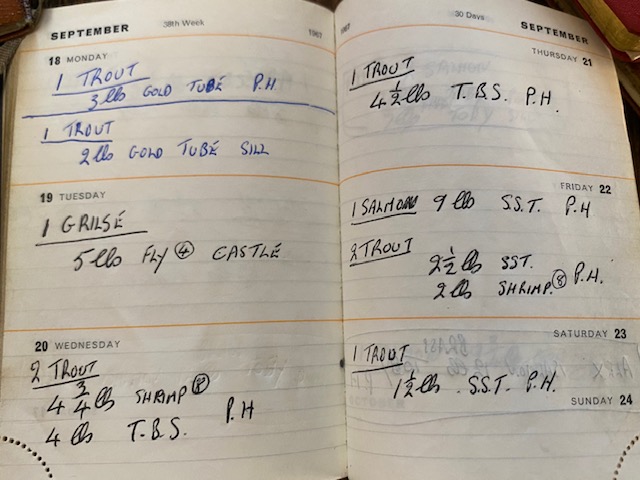 SEPTEMBER 38th Week 1967
18 MONDAY
1 TROUT
3 lbs GOLD TUBE P.H.
1 TROUT
2 lbs GOLD TUBE SILL
19 TUESDAY
1 GRILSE
5 lbs FLY ④ CASTLE
20 WEDNESDAY
2 TROUT
4 3/4 lbs SHRIMP ⑧
4 lbs T.B.S. P.H
1967 30 Days SEPTEMBER
THURSDAY 21
1 TROUT
4 1/2 lbs T.B.S. P.H.
FRIDAY 22
1 SALMON 9 lbs S.S.T. P.H
2 TROUT
2 1/2 lbs SST.
2 lbs SHRIMP. ⑧ P.H.
SATURDAY 23
1 TROUT
1 1/2 lbs. S.S.T. P.H.
SUNDAY 24